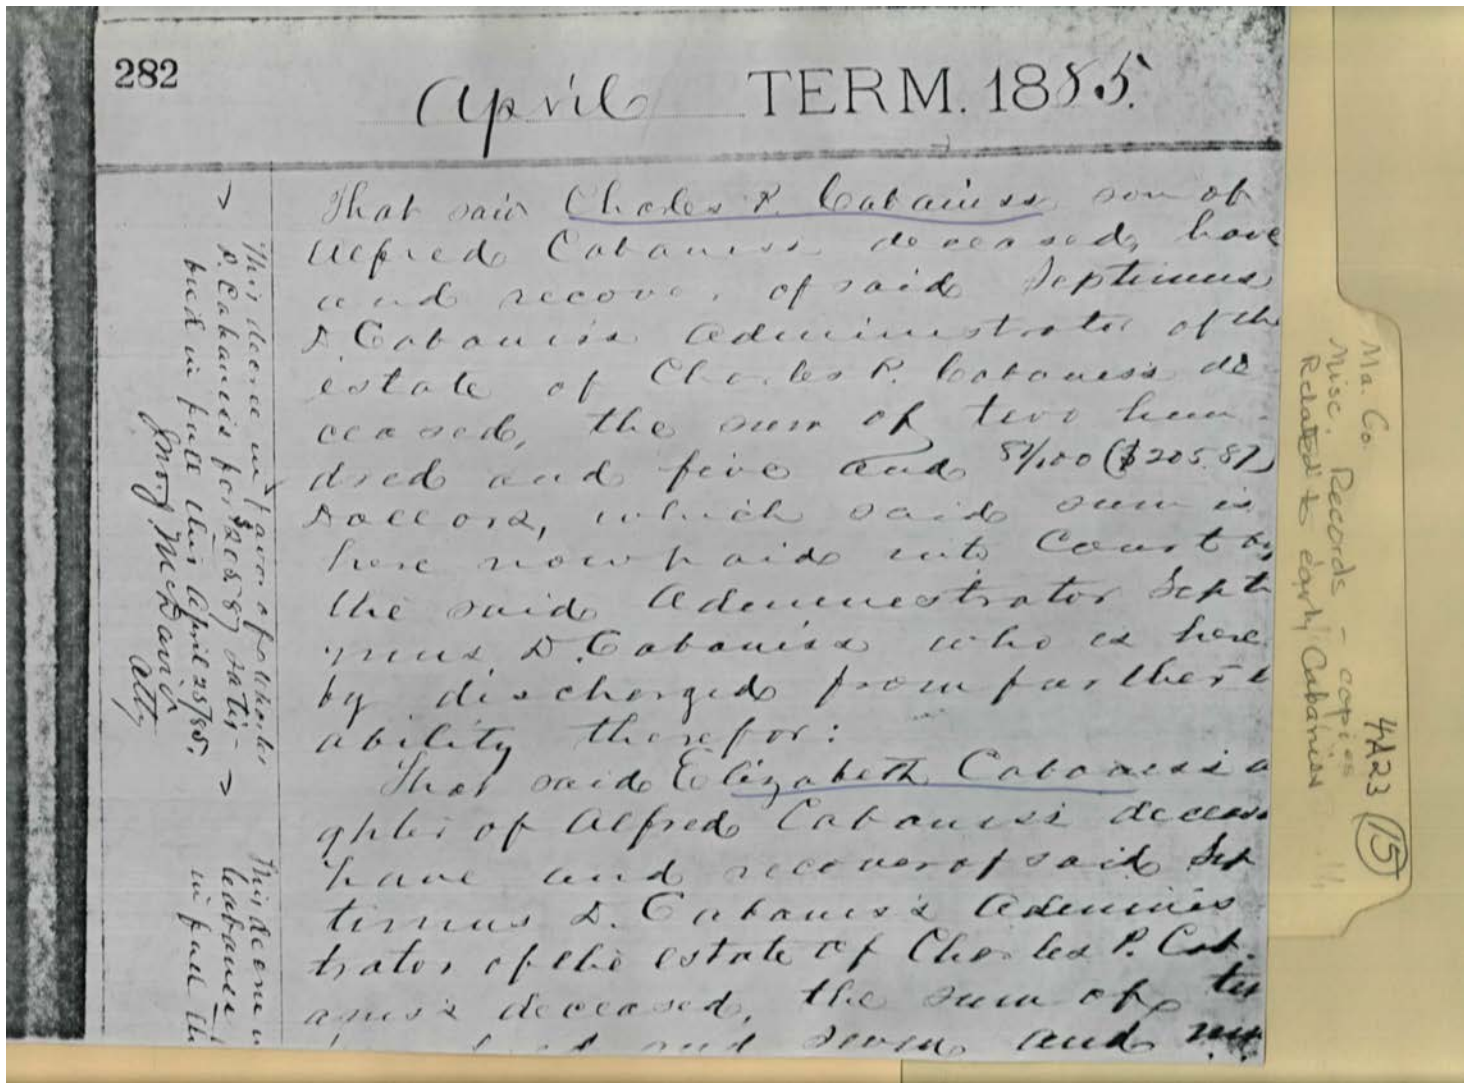 282
April TERM. 1885.
That said Charles P. Cabaniss son of
Alfred Cabaniss deceased, have
and recover of said Septimus
D. Cabaniss Administrator of the
estate of Charles P. Cabaniss de
ceased, the sum of two hun
dred and five and 87/100 ($205.87)
Dollars, which said sum is
here now paid into Court by
the said Administrator Septi
mus D. Cabaniss who is here
by discharged from further li
ability therefor:
That said Elizabeth Cabaniss
ghter of Alfred Cabaniss deceas
have and recover of said Sep
timus D. Cabaniss Adminis
trator of the estate of Charles P. Cab
aniss deceased, the sum of
and seven and
This decree in favor of Charles
P. Cabaniss for $205.87 satis-
fied in full this April 25/85.
McDavid
Atty
This decree
Cabaniss
in full th
Ma. Co.
Misc. Records - copies
Related to early Cabaniss
4A23 (15)